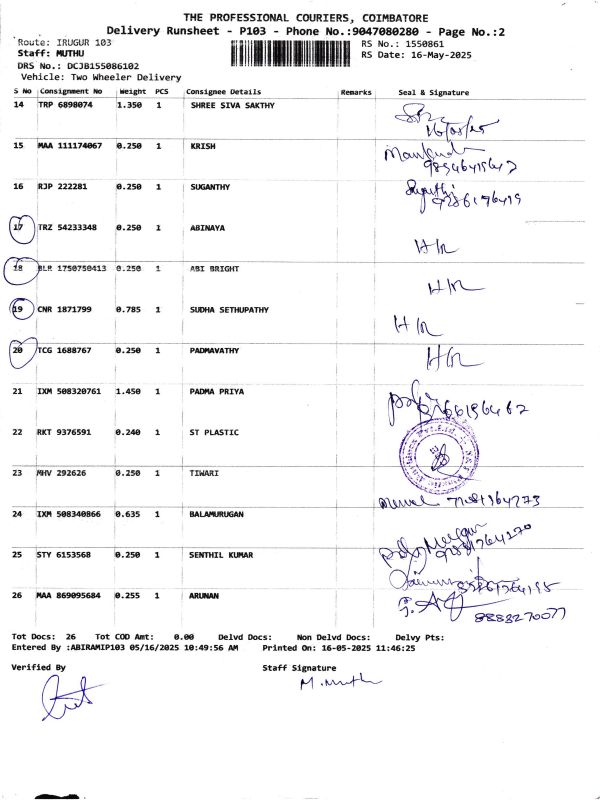 THE PROFESSIONAL COURIERS, COIMBATORE
Delivery Runsheet - P103 - Phone No.:9047080280 - Page No.:2
Route: IRUGUR 103 RS No.: 1550861
Staff: MUTHU RS Date: 16-May-2025
DRS No.: DCJB155086102
Vehicle: Two Wheeler Delivery
S No Consignment No Weight PCS Consignee Details Remarks Seal & Signature
14 TRP 6898074 1.350 1 SHREE SIVA SAKTHY
16/05/25
15 MAA 111174067 0.250 1 KRISH
16 RJP 222281 0.250 1 SUGANTHY
17 TRZ 54233348 0.250 1 ABINAYA
H/R
18 BLR 1750750413 0.250 1 ABI BRIGHT
H/R
19 CNR 1871799 0.785 1 SUDHA SETHUPATHY
H/R
20 TCG 1688767 0.250 1 PADMAVATHY
H/R
21 IXM 508320761 1.450 1 PADMA PRIYA
22 RKT 9376591 0.240 1 ST PLASTIC
23 MHV 292626 0.250 1 TIWARI
24 IXM 508340866 0.635 1 BALAMURUGAN
25 STY 6153568 0.250 1 SENTHIL KUMAR
26 MAA 869095684 0.255 1 ARUNAN
8883270077
Tot Docs: 26 Tot COD Amt: 0.00 Delvd Docs: Non Delvd Docs: Delvy Pts:
Entered By :ABIRAMIP103 05/16/2025 10:49:56 AM Printed On: 16-05-2025 11:46:25
Verified By Staff Signature
M. Muth